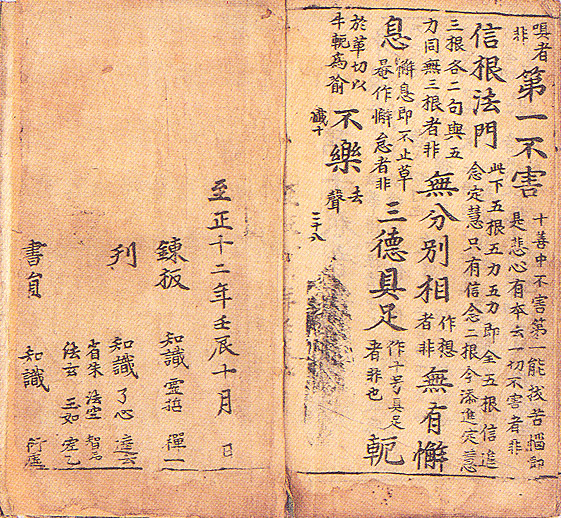 嗔者
非
第一不害
十善中不害第一能拔苦惱即
是悲心有本云一切不害者非
信根法門
此下五根五力五力即全五根信進
念定慧只有信念二根今添進定慧
三根各二句與五
力同無三根者非
無分別相
作想
者非
無有懈
息
懈息即不止草
菴作懈怠者非
三德具足
作十号具足
者非也
軛
於革切以
牛軛為喻
不樂
去聲
二十八
至正十二年壬辰十月 日
鍊板 知識 禪一
刋 知識 了心 達玄
法空
法玄 玉如
書員 知識